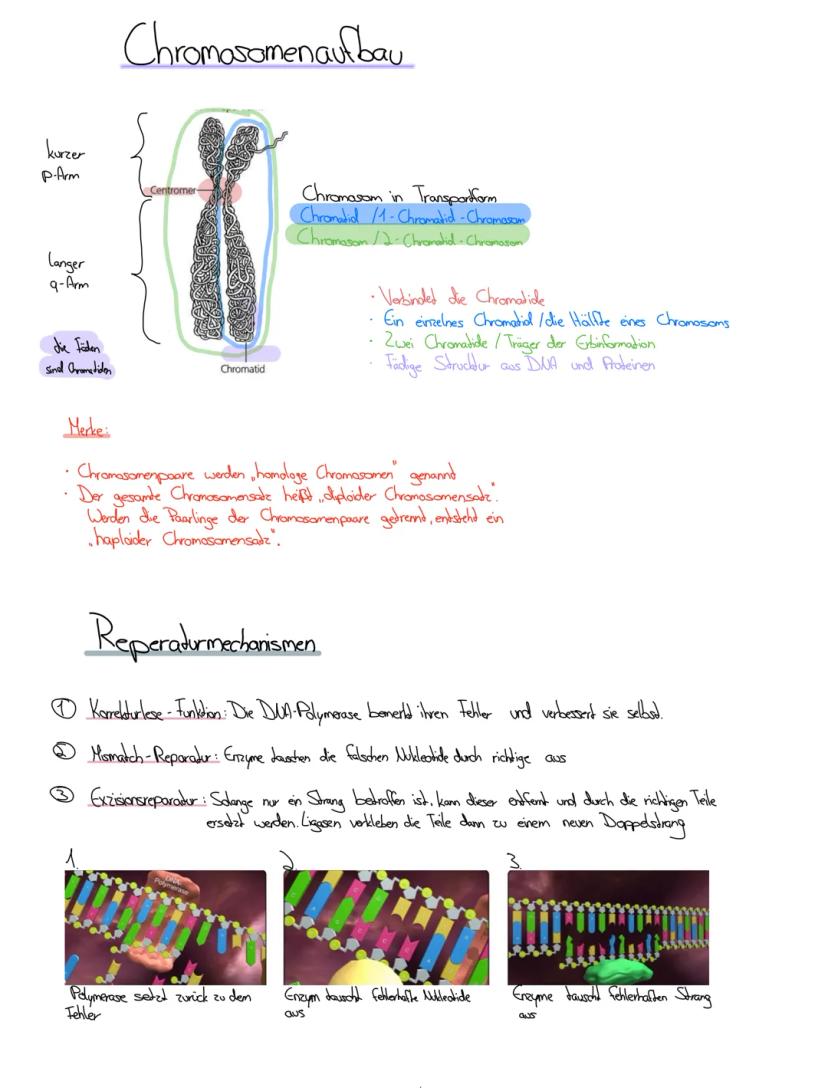 Chromosomenaufbau
kurzer
p-Arm
Centromer
langer
q-Arm
die Fäden
sind Chromatiden
Chromatid
Chromosom in Transportform
Chromatid / 1-Chromatid-Chromosom
Chromosom / 2-Chromatid-Chromosom
· Verbindet die Chromatide
· Ein einzelnes Chromatid / die Hälfte eines Chromosoms
· Zwei Chromatide / Träger der Erbinformation
· Fädige Strucktur aus DNA und Proteinen
Merke:
· Chromosomenpaare werden „homologe Chromosomen" genannt
· Der gesamte Chromosomensatz heißt „diploider Chromosomensatz".
Werden die Paarlinge der Chromosomenpaare getrennt, entsteht ein
„haploider Chromosomensatz".
Reperaturmechanismen
① Korrekturlese-Funktion: Die DNA-Polymerase bemerkt ihren Fehler und verbessert sie selbst.
② Mismatch-Reparatur: Enzyme tauschen die falschen Nukleotide durch richtige aus
③ Exzisionsreparatur: Solange nur ein Strang betroffen ist, kann dieser entfernt und durch die richtigen Teile
ersetzt werden. Ligasen verkleben die Teile dann zu einem neuen Doppelstrang
1.
2.
3.
DNA
Polymerase
Polymerase setzt zurück zu dem
Fehler
Enzym tauscht fehlerhafte Nukleotide
aus
Enzyme tauscht fehlerhaften Strang
aus